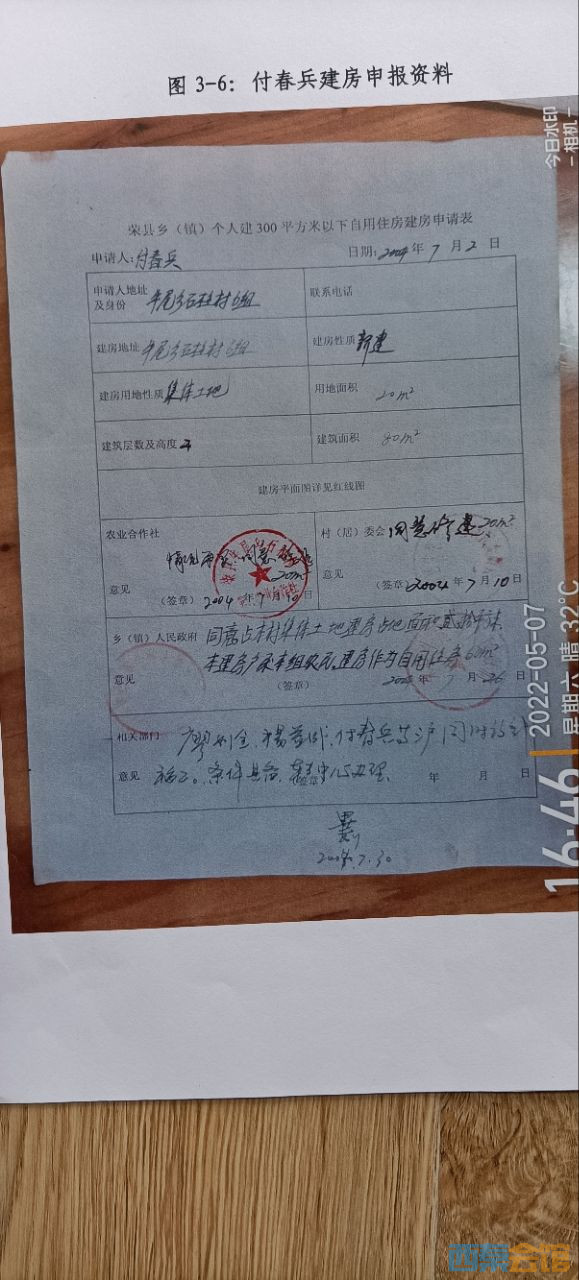 图 3-6：付春兵建房申报资料
荣县乡（镇）个人建300平方米以下自用住房建房申请表
申请人：付春兵 日期：2004年7月2日
申请人地址及身份 石柱村6组 联系电话
建房地址 石柱村6组 建房性质 新建
建房用地性质 集体土地 用地面积 20m²
建筑层数及高度 建筑面积 80m²
建房平面图详见红线图
农业合作社 村（居）委会 同意修建20m²
情况 同意 20m²
意见 意见
（签章）2004年7月10日 （签章）2004年7月10日
乡（镇）人民政府 同意占本村集体土地建房占地面积
本组农民，建房作为自用住房
意见 （签章） 年7月26日
相关部门 付春兵等 户
意见 条件具备 办理 年 月 日
2004.7.30
今日水印
-相机-
16:46
2022-05-07
星期六 晴 32℃
西秦会馆